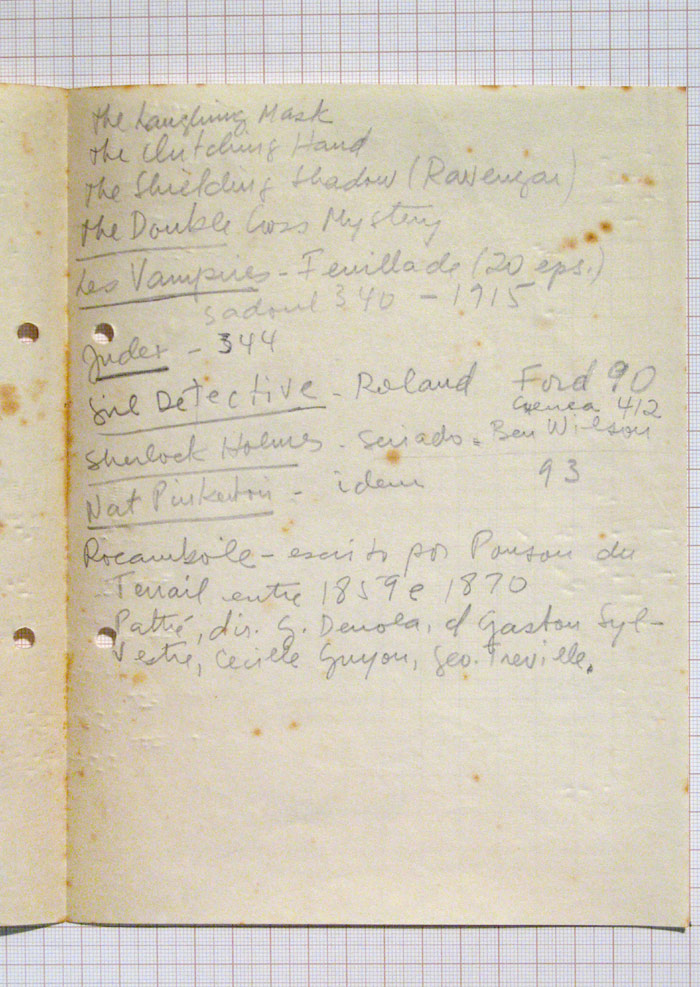 The Laughing Mask
The Clutching Hand
The Shielding Shadow (Ravengar)
The Double Cross Mystery
Les Vampires - Feuillade (20 eps.)
Sadoul 340 - 1915
Judex - 344
Girl Detective - Roland Ford 90
412
Sherlock Holmes - Seriado - Ben Wilson
Nat Pinkerton - idem 93
Rocambole - escrito por Ponson du
Terrail entre 1859 e 1870
Pathé, dir. G. Denola, c/ Gaston Syl-
vestre, Cecille Guyon, Geo. Treville.